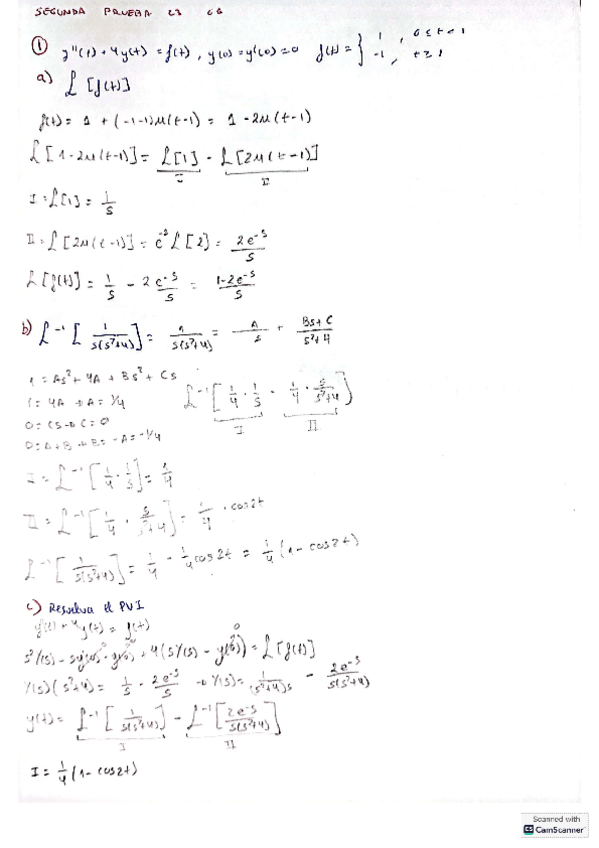 SEGUNDA PRUEBA 23
① y''(t) + 4y(t) = f(t), y(0) = y'(0) = 0 f(t) = { 1, 0 ≤ t < 1
-1, t ≥ 1
a) L [f(t)]
f(t) = 1 + (-1-1)μ(t-1) = 1 - 2μ(t-1)
L[1-2μ(t-1)] = L[1] - L[2μ(t-1)]
I II
I = L[1] = 1/s
II = L[2μ(t-1)] = e^-s L[2] = 2e^-s/s
L[f(t)] = 1/s - 2e^-s/s = 1-2e^-s/s
b) L^-1 [1/s(s²+4)] = 1/s(s²+4) = A/s + Bs+C/s²+4
1 = As² + 4A + Bs² + Cs
1 = 4A → A = 1/4
0 = Cs → C = 0
0 = A+B → B = -A = -1/4
L^-1 [1/4 · 1/s - 1/4 · s/s²+4]
I II
I = L^-1 [1/4 · 1/s] = 1/4
II = L^-1 [1/4 · s/s²+4] = 1/4 · cos2t
L^-1 [1/s(s²+4)] = 1/4 - 1/4 cos2t = 1/4 (1 - cos2t)
c) Resuelva el PVI
y''(t) + 4y(t) = f(t)
s²Y(s) - sy(0) - y(0) + 4(sY(s) - y(0)) = L[f(t)]
Y(s)(s²+4) = 1/s - 2e^-s/s → Y(s) = 1/(s²+4)s - 2e^-s/s(s²+4)
y(t) = L^-1 [1/s(s²+4)] - L^-1 [2e^-s/s(s²+4)]
I II
I = 1/4 (1 - cos2t)
Scanned with
CamScanner